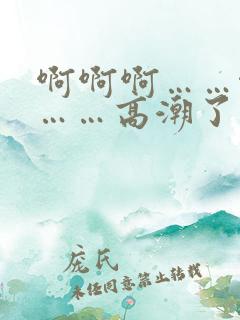 啊啊啊……
……高潮了
庞氏
未经同意禁止转载